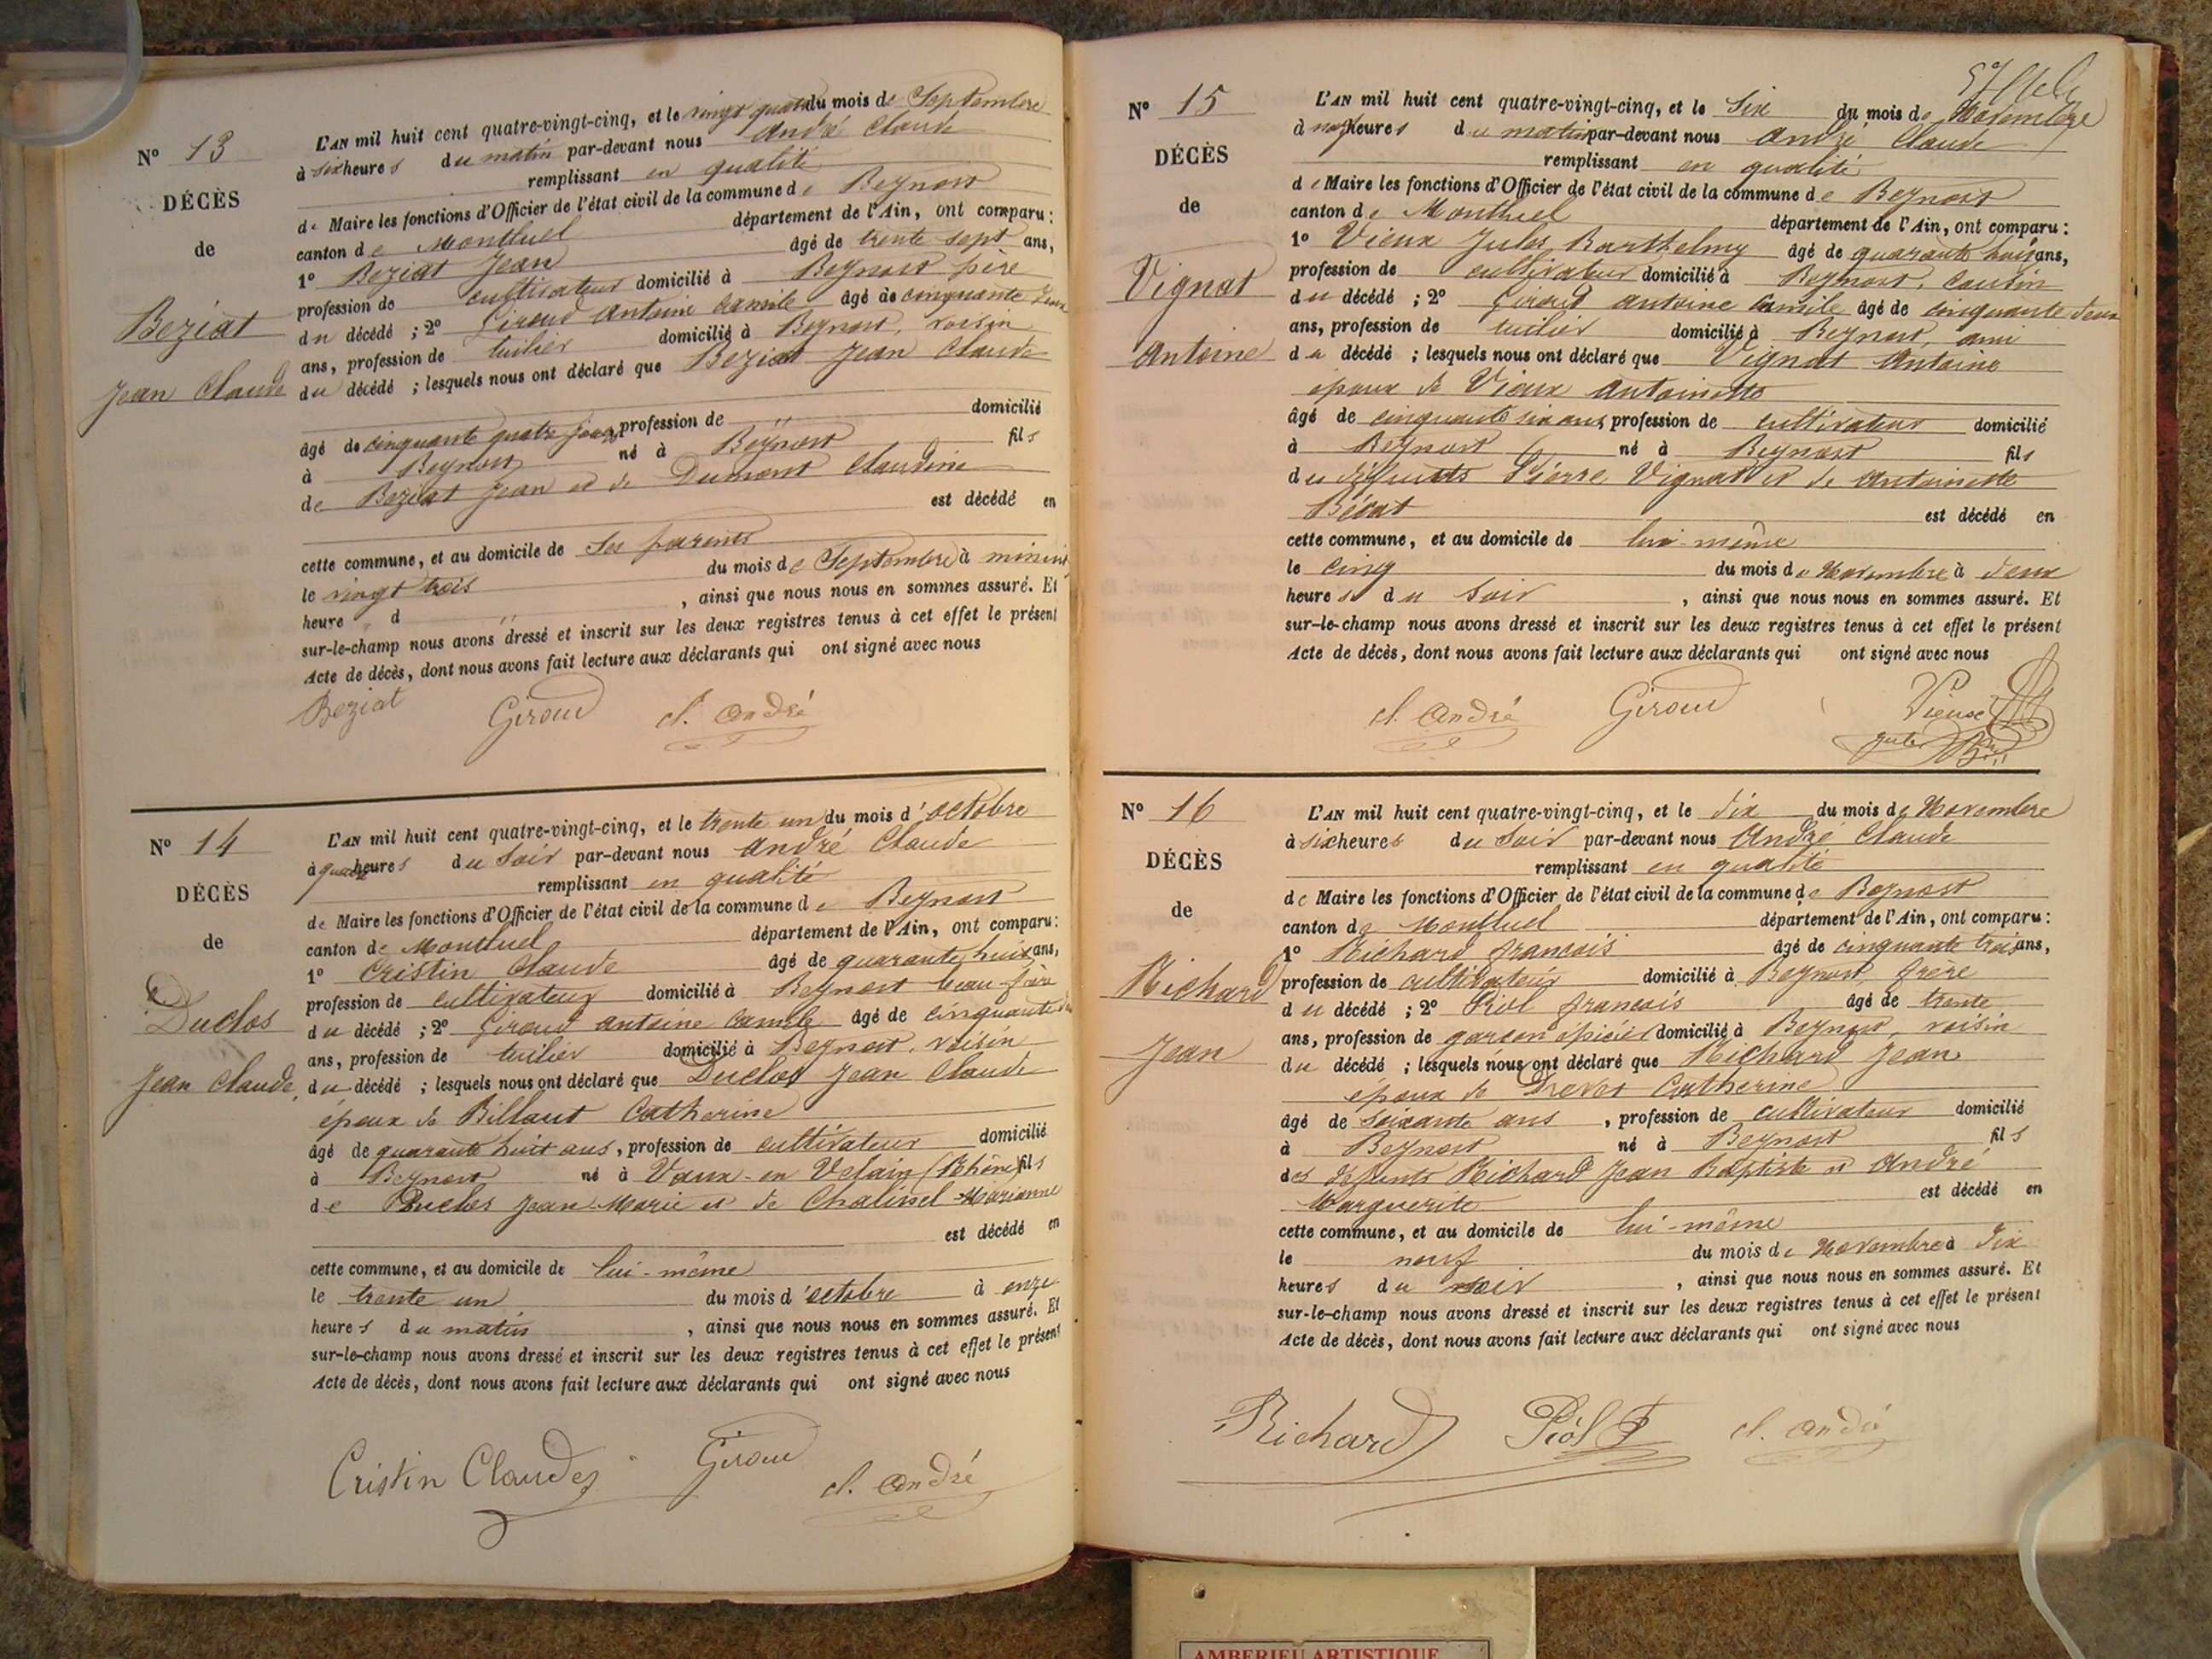 N° 13
DÉCÈS
de
Beziat
Jean Claude
L'AN mil huit cent quatre-vingt-cinq, et le vingt quatre du mois de Septembre
à six heures du matin par-devant nous André Claude
remplissant en qualité
de Maire les fonctions d'Officier de l'état civil de la commune de Beynost
canton de Montluel département de l'Ain, ont comparu :
1° Beziat Jean âgé de trente sept ans,
profession de cultivateur domicilié à Beynost père
du décédé ; 2° Giroud Antoine Camile âgé de cinquante deux
ans, profession de tuilier domicilié à Beynost, voisin
du décédé ; lesquels nous ont déclaré que Beziat Jean Claude
âgé de cinquante quatre jours, profession de " domicilié
à Beynost né à Beynost fils
de Beziat Jean et de Dumont Claudine
est décédé en
cette commune, et au domicile de ses parents
le vingt trois du mois de Septembre à minuit
heure d " , ainsi que nous nous en sommes assuré. Et
sur-le-champ nous avons dressé et inscrit sur les deux registres tenus à cet effet le présent
Acte de décès, dont nous avons fait lecture aux déclarants qui ont signé avec nous
Beziat Giroud cl. André
N° 14
DÉCÈS
de
Duclos
Jean Claude,
L'AN mil huit cent quatre-vingt-cinq, et le trente un du mois d'octobre
à quatre heures du soir par-devant nous André Claude
remplissant en qualité
de Maire les fonctions d'Officier de l'état civil de la commune de Beynost
canton de Montluel département de l'Ain, ont comparu :
1° Cristin Claude âgé de quarante huit ans,
profession de cultivateur domicilié à Beynost beau-frère
du décédé ; 2° Giroud Antoine Camile âgé de cinquante deux
ans, profession de tuilier domicilié à Beynost, voisin
du décédé ; lesquels nous ont déclaré que Duclos Jean Claude
époux de Billaut Catherine
âgé de quarante huit ans, profession de cultivateur domicilié
à Beynost né à Vaux-en Velain (Rhône) fils
de Duclos Jean-Marie et de Chalinel Marianne
est décédé en
cette commune, et au domicile de lui-même
le trente un du mois d'octobre à onze
heures du matin , ainsi que nous nous en sommes assuré. Et
sur-le-champ nous avons dressé et inscrit sur les deux registres tenus à cet effet le présent
Acte de décès, dont nous avons fait lecture aux déclarants qui ont signé avec nous
Cristin Claude Giroud cl. André
N° 15
DÉCÈS
de
Vignat
Antoine
L'AN mil huit cent quatre-vingt-cinq, et le six du mois de Novembre
à neuf heures du matin par-devant nous André Claude
remplissant en qualité
de Maire les fonctions d'Officier de l'état civil de la commune de Beynost
canton de Montluel département de l'Ain, ont comparu :
1° Vieux Jules Barthelmy âgé de quarante huit ans,
profession de cultivateur domicilié à Beynost, cousin
du décédé ; 2° Giroud Antoine Camile âgé de cinquante deux
ans, profession de tuilier domicilié à Beynost, ami
du décédé ; lesquels nous ont déclaré que Vignat Antoine
époux de Vieux Antoinette
âgé de cinquante six ans, profession de cultivateur domicilié
à Beynost né à Beynost fils
du défunts Pierre Vignat et de Antoinette
Bécat est décédé en
cette commune, et au domicile de lui-même
le cinq du mois de Novembre à deux
heures du soir , ainsi que nous nous en sommes assuré. Et
sur-le-champ nous avons dressé et inscrit sur les deux registres tenus à cet effet le présent
Acte de décès, dont nous avons fait lecture aux déclarants qui ont signé avec nous
cl. André Giroud Vieux
Jules
N° 16
DÉCÈS
de
Richard
Jean
L'AN mil huit cent quatre-vingt-cinq, et le dix du mois de Novembre
à six heures du soir par-devant nous André Claude
remplissant en qualité
de Maire les fonctions d'Officier de l'état civil de la commune de Beynost
canton de Montluel département de l'Ain, ont comparu :
1° Richard françois âgé de cinquante trois ans,
profession de cultivateur domicilié à Beynost, frère
du décédé ; 2° Piol françois âgé de trente
ans, profession de garçon épicier domicilié à Beynost, voisin
du décédé ; lesquels nous ont déclaré que Richard Jean
époux de Drevet Catherine
âgé de soixante ans , profession de cultivateur domicilié
à Beynost né à Beynost fils
des défunts Richard Jean Baptiste et André
Marguerite est décédé en
cette commune, et au domicile de lui-même
le neuf du mois de Novembre à dix
heures du soir , ainsi que nous nous en sommes assuré. Et
sur-le-champ nous avons dressé et inscrit sur les deux registres tenus à cet effet le présent
Acte de décès, dont nous avons fait lecture aux déclarants qui ont signé avec nous
Richard Piol F cl. André
AMBERIEU ARTISTIQUE